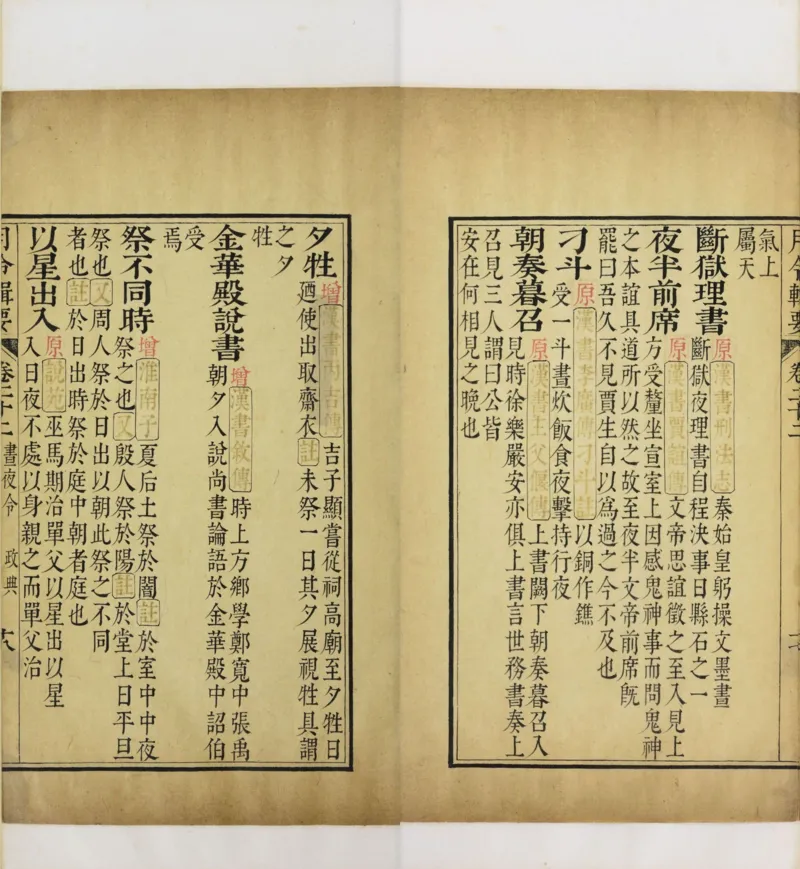 月令輯要 卷二十二
氣上
屬天
斷獄理書 原 漢書刑法志 秦始皇躬操文墨晝
斷獄夜理書自程決事日縣石之一
夜半前席 原 漢書賈誼傳 文帝思誼徵之至入見上
方受釐坐宣室上因感鬼神事而問鬼神
之本誼具道所以然之故至夜半文帝前席旣
罷曰吾久不見賈生自以爲過之今不及也
刁斗 原 漢書李廣傳刁斗註 以銅作鐎
受一斗晝炊飯食夜擊持行夜
朝奏暮召 原 漢書主父偃傳 上書闕下朝奏暮召入
見時徐樂嚴安亦俱上書言世務書奏上
召見三人謂曰公皆
安在何相見之晚也
夕牲 增 漢書丙吉傳 吉子顯嘗從祠高廟至夕牲日
廼使出取齋衣 註 未祭一日其夕展視牲具謂
之夕
牲
金華殿說書 增 漢書敘傳 時上方鄉學鄭寬中張禹
朝夕入說尚書論語於金華殿中詔伯
受
焉
祭不同時 增 淮南子 夏后土祭於闇 註 於室中中夜
祭之也 又 殷人祭於陽 註 於堂上日平旦
祭也 又 周人祭於日出以朝此祭之不同
者也 註 於日出時祭於庭中朝者庭也
以星出入 原 說苑 巫馬期治單父以星出以星
入日夜不處以身親之而單父治
月令輯要 卷二十二 晝夜令 政典